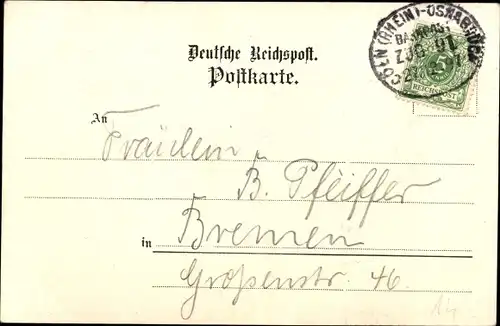 Deutsche Reichspost.
Postkarte.
CÖLN (RHEIN)-OSNABRÜCK
BAHNPOST
ZUG 91
5
REICHSPOST
An
Fräulein
B. Pfeiffer
in Bremen
Großenstr. 46.